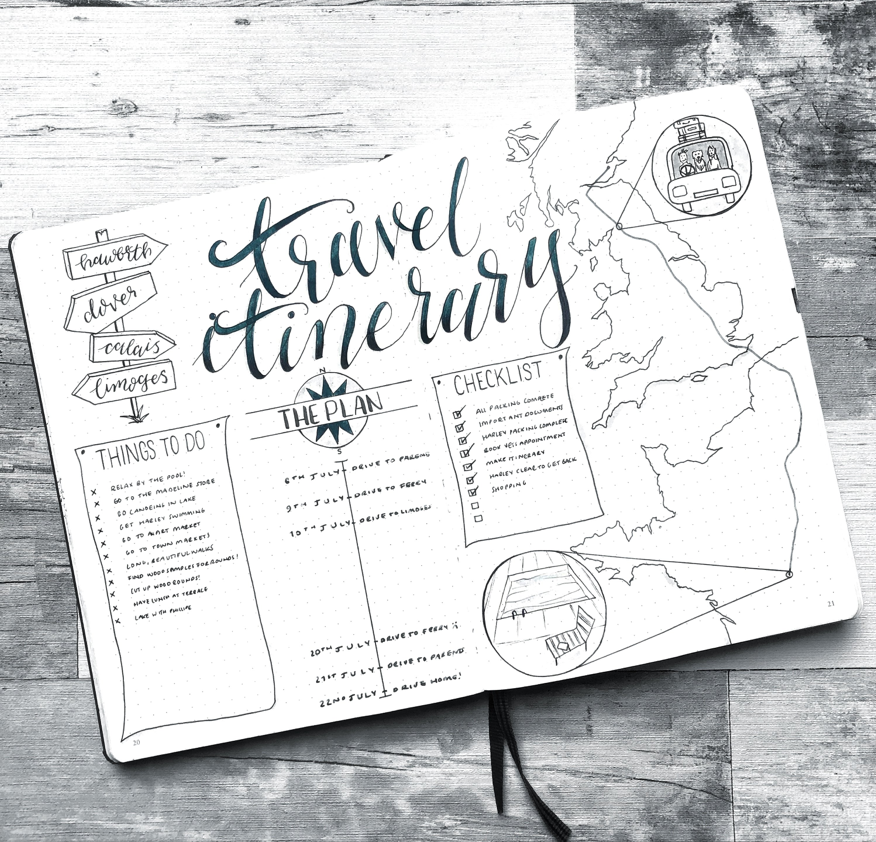 travel
itinerary
haworth
dover
calais
limoges
THINGS TO DO
x RELAX BY THE POOL!
x GO TO THE MADELINE STORE
x GO CANOEING IN LAKE
x GET HARLEY SWIMMING
x GO TO MARKET
x GO TO TOWN MARKETS
x LONG, BEAUTIFUL WALKS
x FIND WOOD SAMPLES FOR ROUNDS!
x CUT UP WOOD ROUNDS!
x HAVE LUNCH AT TERRACE
x LAKE WITH PHILLIPE
N
THE PLAN
S
6TH JULY DRIVE TO PARENTS
9TH JULY DRIVE TO FERRY
10TH JULY DRIVE TO LIMOGES
20TH JULY DRIVE TO FERRY
21ST JULY DRIVE TO PARENTS
22ND JULY DRIVE HOME!
CHECKLIST
ALL PACKING COMPLETE
IMPORTANT DOCUMENTS
HARLEY PACKING COMPLETE
BOOK VET APPOINTMENT
MAKE ITINERARY
HARLEY CLEAR TO GET BACK
SHOPPING
20
21